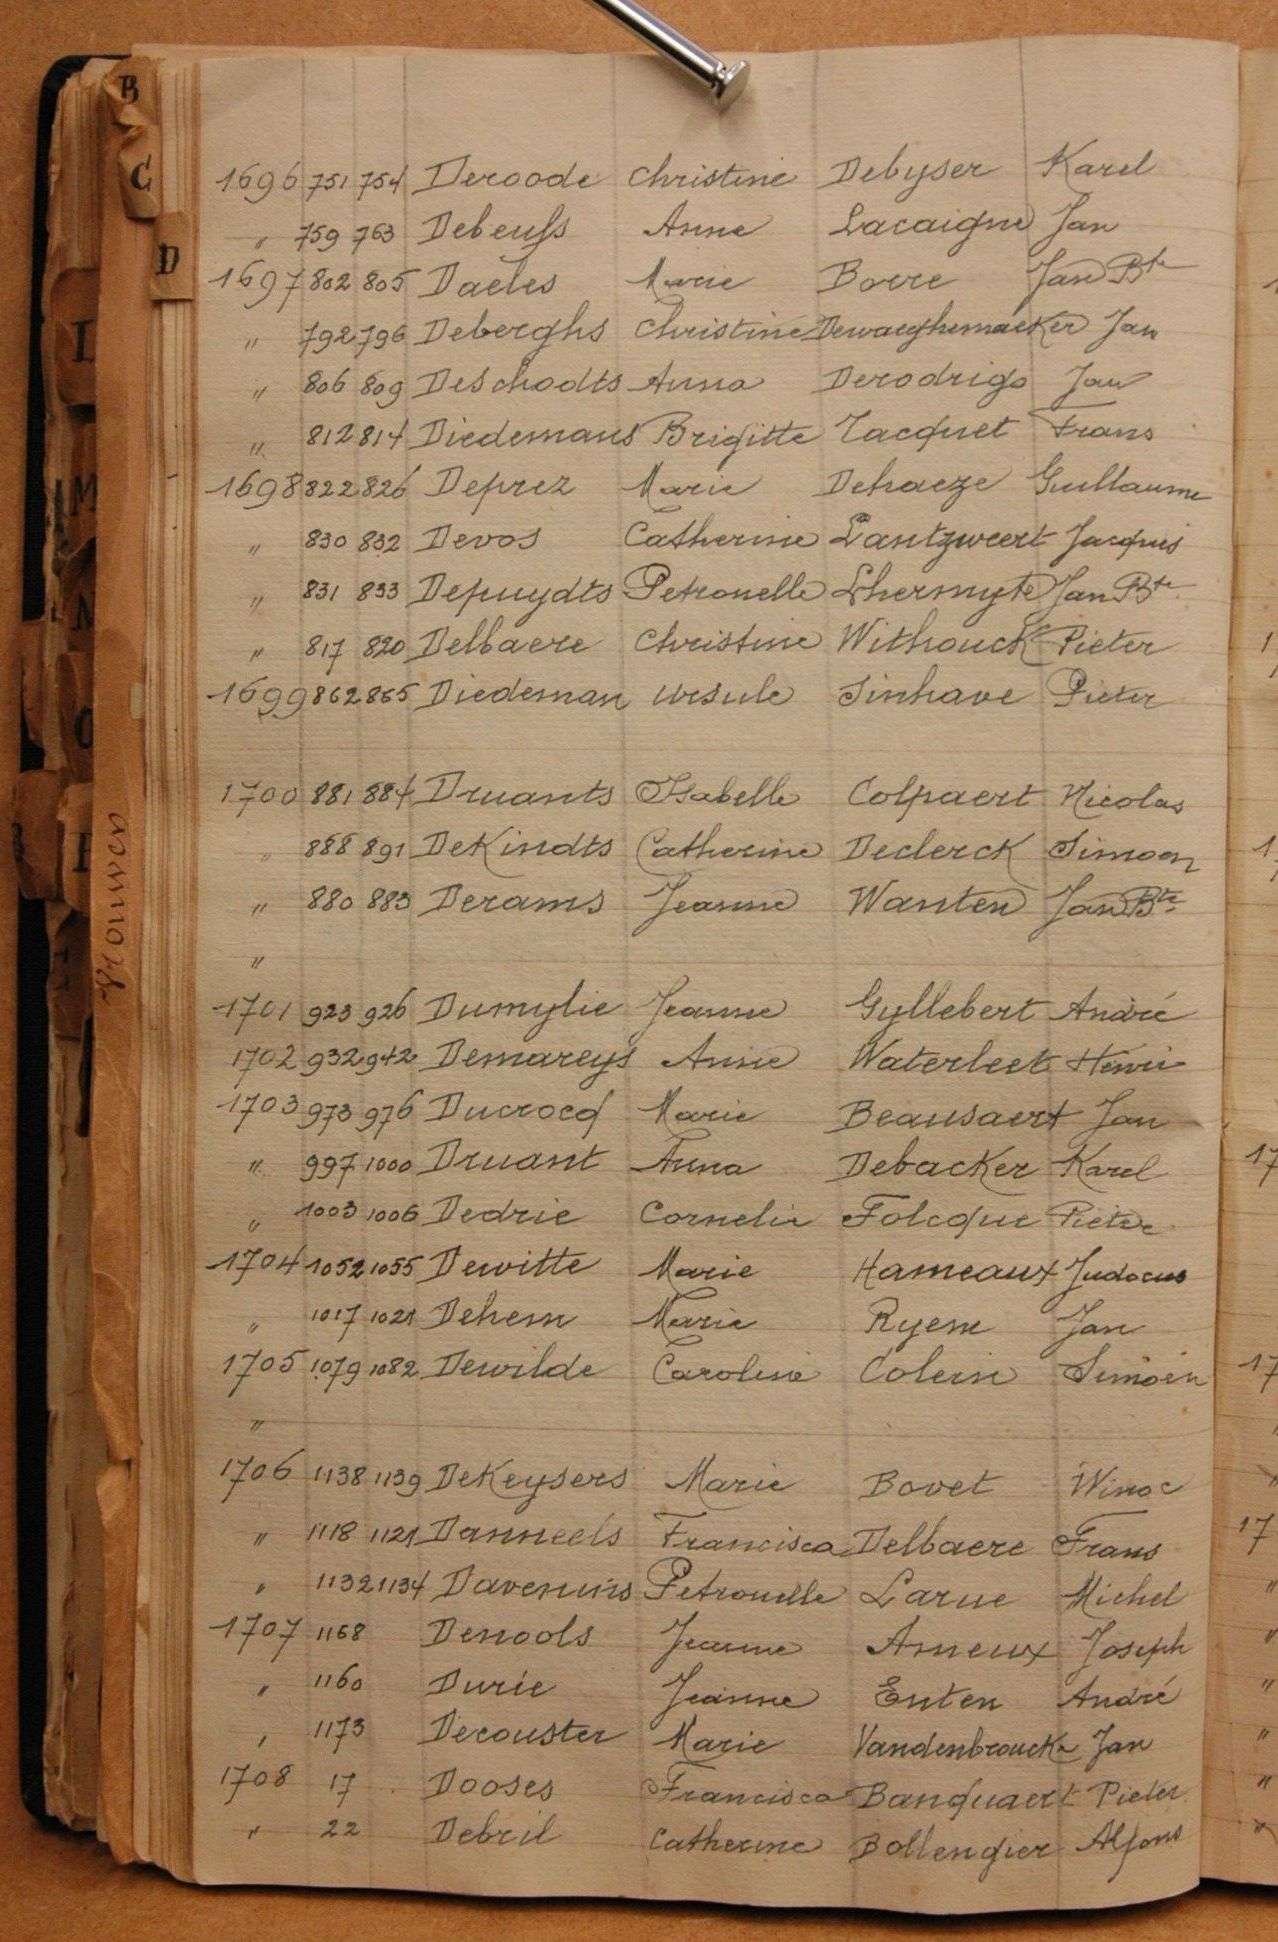 B
C
D
L
M
N
O
P
Vrouwen
1696 751 754 Deroode Christine Debyser Karel
" 759 763 Debeuss Anne Lacaigne Jan
1697 802 805 Daeles Marie Borre Jan Bte
" 792 796 Deberghs Christine Dewaeghemaeker Jan
" 806 809 Deschodts Anna Derodrigo Jan
" 812 814 Diedemans Brigitte Jacquet Frans
1698 822 826 Deprez Marie Dehaeze Guillaume
" 830 832 Devos Catherine Lantzweert Jacques
" 831 833 Depuydts Petronelle Lhermyte Jan Bte
" 817 820 Delbaere Christine Withouck Pieter
1699 862 865 Diedeman Ursule Sinhave Pieter
1700 881 884 Druants Isabelle Colpaert Nicolas
" 888 891 DeKindts Catherine Declerck Simoen
" 880 883 Derams Jeanne Wanten Jan Bte
"
1701 923 926 Dumylie Jeanne Gyllebert André
1702 932 942 Demareys Anne Waterleet Henri
1703 973 976 Ducrocq Marie Beausaert Jan
" 997 1000 Druant Anna Debacker Karel
" 1003 1006 Dedrie Cornelie Folcque Pieter
1704 1052 1055 Dewitte Marie Hameaux Judocus
" 1017 1021 Dehem Marie Ryem Jan
1705 1079 1082 Dewilde Caroline Colein Simoen
"
1706 1138 1139 DeKeysers Marie Bovet Winoc
" 1118 1121 Danneels Francisca Delbaere Frans
" 1132 1134 Davenins Petronelle Larue Michel
1707 1168 Denools Jeanne Ameux Joseph
" 1160 Durie Jeanne Enten André
" 1173 Decouster Marie Vandenbroucke Jan
1708 17 Dooses Francisca Banquaert Pieter
" 22 Debril Catherine Bollengier Alfons